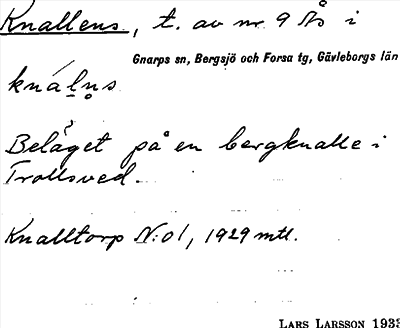 Knallens, t. av nr 9 Ås i
Gnarps sn, Bergsjö och Forsa tg, Gävleborgs län
knáḷṇs
Beläget på en bergknalle i
Trollsved.
Knalltorp N:o 1, 1929 mtl.
LARS LARSSON 1933